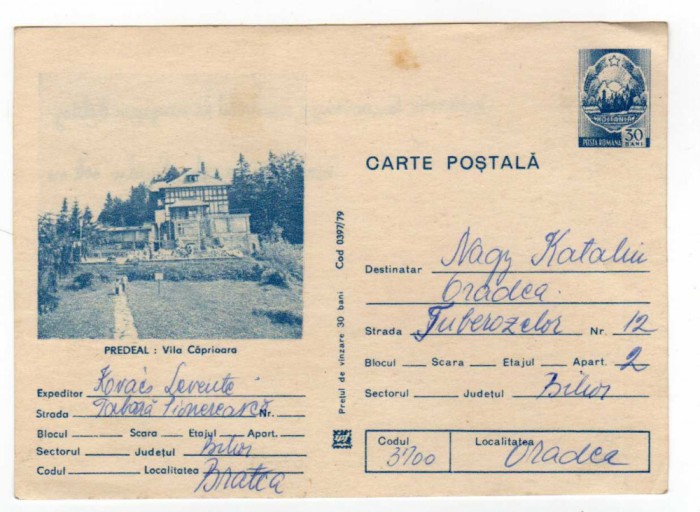 POSTA ROMANA 30 BANI
CARTE POȘTALĂ
PREDEAL : Vila Căprioara
Expeditor Kovács Levente
Strada Tabără Pionerească Nr.
Blocul Scara Etajul Apart.
Sectorul Județul Bihor
Codul Localitatea Bratca
Prețul de vînzare 30 bani Cod 0397/79
Destinatar Nagy Katalin
Oradea
Strada Tuberozelor Nr. 12
Blocul Scara Etajul Apart. 2
Sectorul Județul Bihor
Codul Localitatea
3700 Oradea